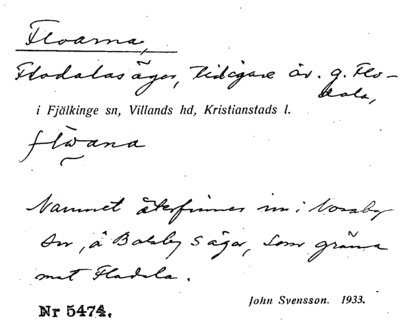 Floarna,
Flodalas ägor, tidigare äv. g. Flo-
dala,
i Fjälkinge sn, Villands hd, Kristianstads l.
flωana
Namnet återfinnes inv i Nosaby
sn, å Balsby s ägor, som gräns
mot Flodala.
Nr 5474. John Svensson. 1933.